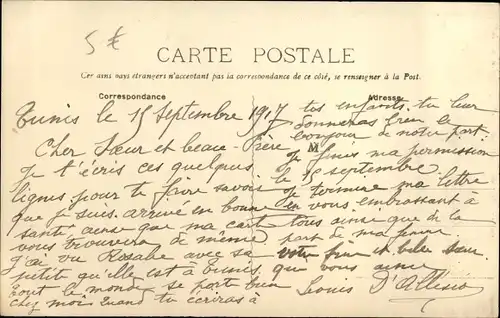 5€
CARTE POSTALE
Certains pays étrangers n'acceptant pas la correspondance de ce côté, se renseigner à la Post.
Correspondance
Tunis le 15 Septembre 1917
Cher Sœur et beau-Frère
Je t'écris ces quelques
lignes pour te faire savoir
que je suis arrivé en bonne
santé ainsi que ma carte
vous trouvera de même
j'ai vu Rosalie avec sa
petite qu'elle est à Tunis,
tout le monde se porte bien
chez moi Quand tu écriras à
Adresse
M
tes enfants tu leur
donneras bien le
bonjour de notre part.
Je finis ma permission
le septembre
Je termine ma lettre
en vous embrassant à
tous ainsi que de la
part de ma
votre frère et belle sœur
que vous aime
Louis D'